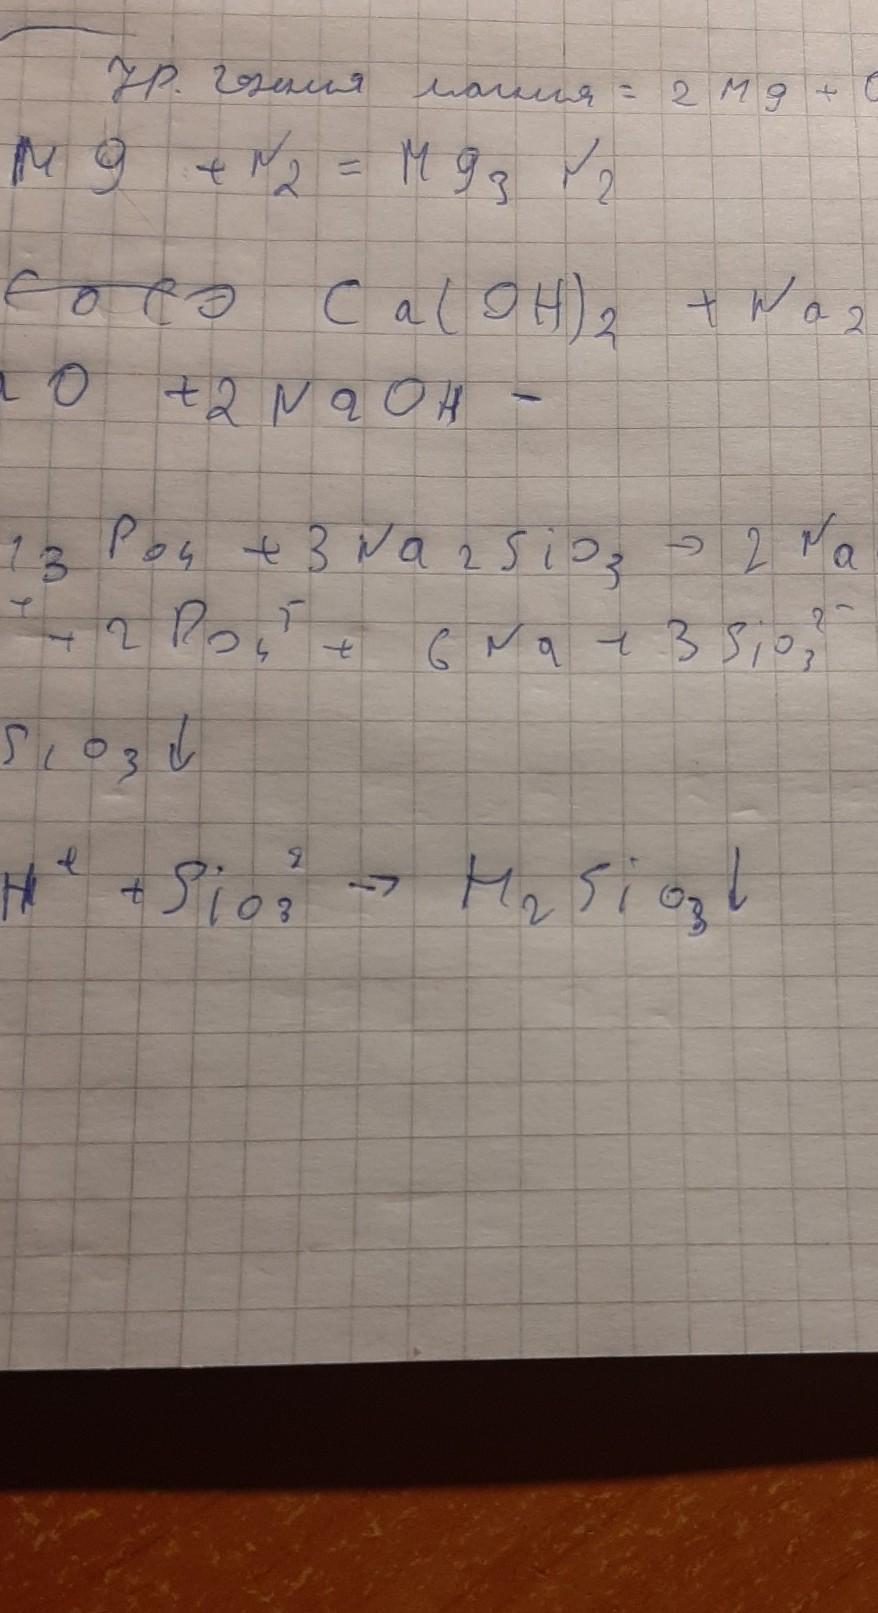 Ур. горения магния = 2 Mg +
Mg + N₂ = Mg₃ N₂
Ca(OH)₂ + Na₂
O + 2 NaOH -
₃ PO₄ + 3 Na₂SiO₃ → 2 Na
+ + 2 PO₄ + 6 Na + 3 SiO₃²⁻
SiO₃↓
H⁺ + SiO₃² → H₂SiO₃↓